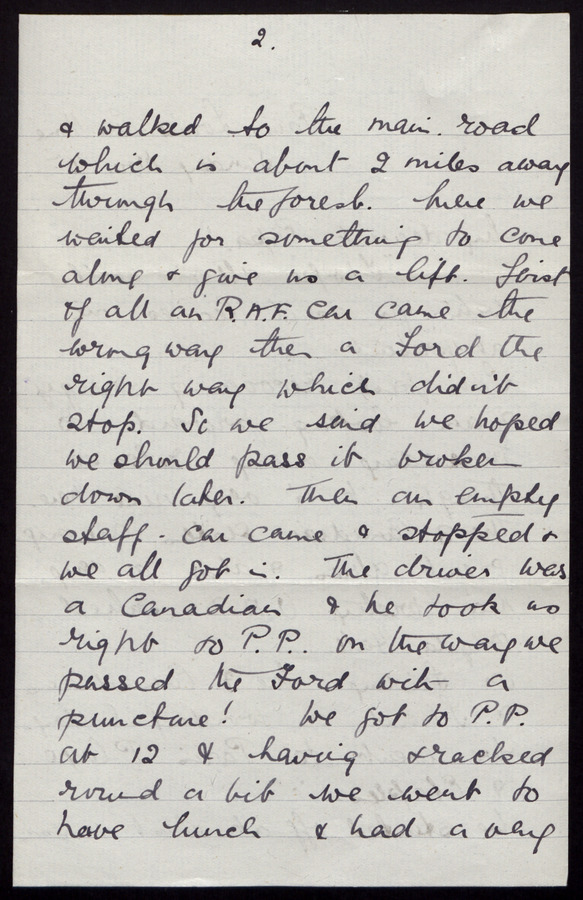 2.
& walked to the main road
which is about 2 miles away
through the forest. Here we
waited for something to come
along & give us a lift. First
of all an R.A.F. car came the
wrong way then a Ford the
right way which didn't
stop. So we said we hoped
we should pass it broken
down later. Then an empty
staff-car came & stopped &
we all got in. The driver was
a Canadian & he took us
right to P.P.. On the way we
passed the Ford with a
puncture! We got to P.P.
at 12 & having
round a bit we went to
have lunch & had a very